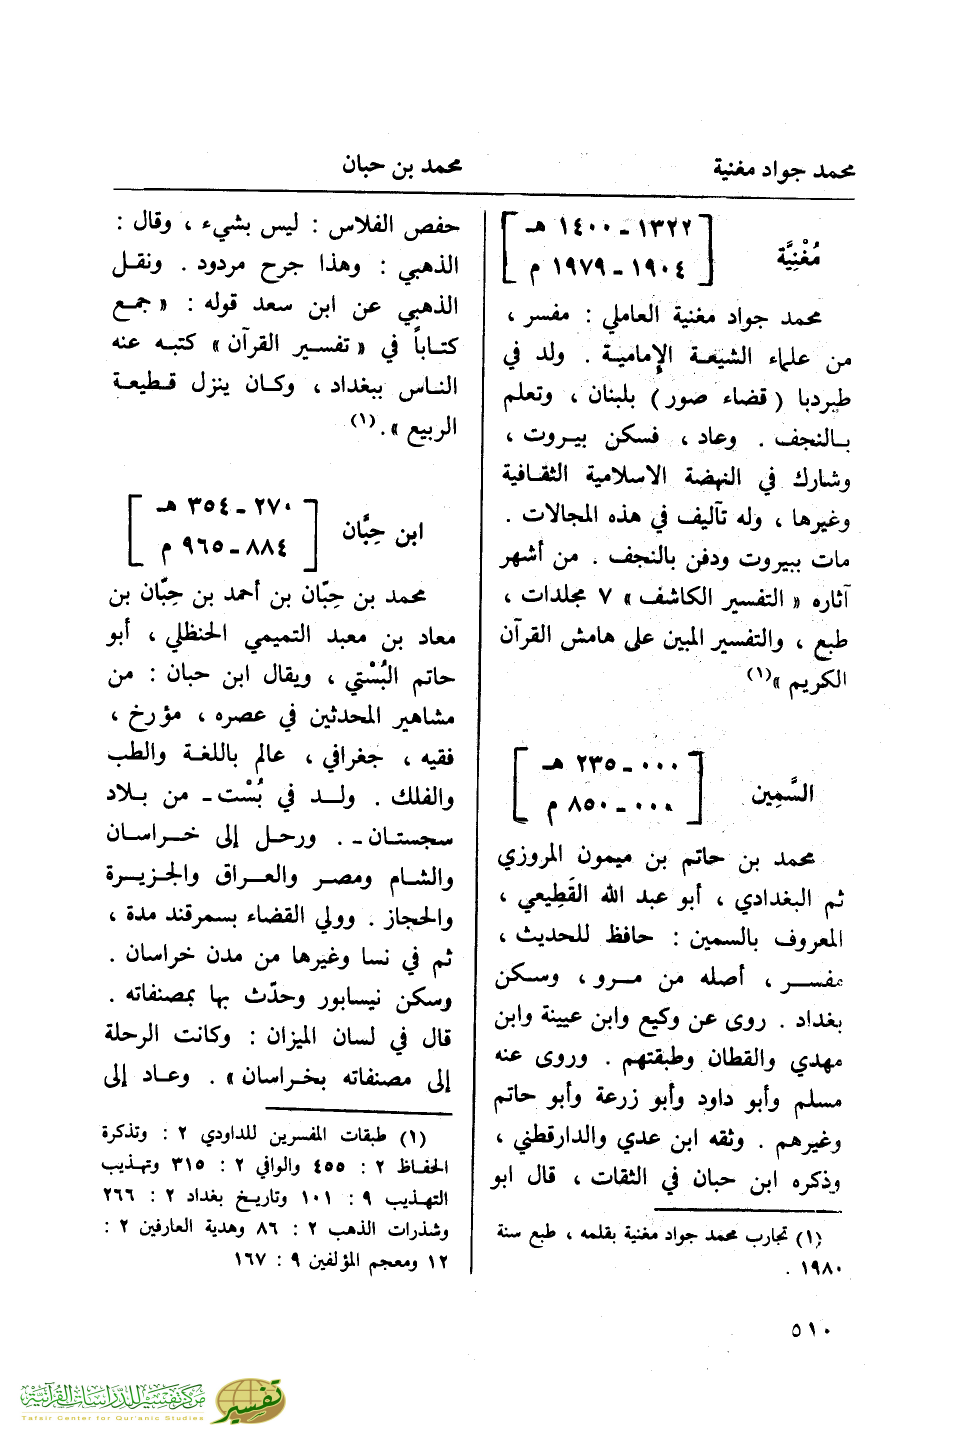 محمد جواد مغنية
محمد بن حبان
مُغْنِيَّة
[ ١٣٢٢ - ١٤٠٠ هـ
١٩٠٤ - ١٩٧٩ م ]
محمد جواد مغنية العاملي : مفسر ،
من علماء الشيعة الإمامية . ولد في
طبردبا ( قضاء صور ) بلبنان ، وتعلم
بالنجف . وعاد ، فسكن بيروت ،
وشارك في النهضة الاسلامية الثقافية
وغيرها ، وله تآليف في هذه المجالات .
مات ببيروت ودفن بالنجف . من أشهر
آثاره « التفسير الكاشف » ٧ مجلدات ،
طبع ، والتفسير المبين على هامش القرآن
الكريم »(١)
السَّمِين
[ ٠٠٠ - ٢٣٥ هـ
٠٠٠ - ٨٥٠ م ]
محمد بن حاتم بن ميمون المروزي
ثم البغدادي ، أبو عبد الله القَطِيعي ،
المعروف بالسمين : حافظ للحديث ،
مفسر ، أصله من مرو ، وسكن
بغداد . روى عن وكيع وابن عيينة وابن
مهدي والقطان وطبقتهم . وروى عنه
مسلم وأبو داود وأبو زرعة وأبو حاتم
وغيرهم . وثقه ابن عدي والدارقطني ،
وذكره ابن حبان في الثقات ، قال ابو
(١) تجارب محمد جواد مغنية بقلمه ، طبع سنة
١٩٨٠ .
حفص الفلاس : ليس بشيء ، وقال :
الذهبي : وهذا جرح مردود . ونقل
الذهبي عن ابن سعد قوله : « جمع
كتاباً في « تفسير القرآن » كتبه عنه
الناس ببغداد ، وكان ينزل قطيعة
الربيع » .(١)
ابن حِبَّان
[ ٢٧٠ - ٣٥٤ هـ
٨٨٤ - ٩٦٥ م ]
محمد بن حِبّان بن أحمد بن حِبّان بن
معاد بن معبد التميمي الحنظلي ، أبو
حاتم البُسْتي ، ويقال ابن حبان : من
مشاهير المحدثين في عصره ، مؤرخ ،
فقيه ، جغرافي ، عالم باللغة والطب
والفلك . ولد في بُسْت - من بلاد
سجستان - . ورحل إلى خراسان
والشام ومصر والعراق والجزيرة
والحجاز . وولي القضاء بسمرقند مدة ،
ثم في نسا وغيرها من مدن خراسان .
وسكن نيسابور وحدّث بها بمصنفاته .
قال في لسان الميزان : وكانت الرحلة
إلى مصنفاته بخراسان » . وعاد إلى
(١) طبقات المفسرين للداودي ٢ : وتذكرة
الحفاظ ٢ : ٤٥٥ والوافي ٢ : ٣١٥ وتهذيب
التهذيب ٩ : ١٠١ وتاريخ بغداد ٢ : ٢٦٦
وشذرات الذهب ٢ : ٨٦ وهدية العارفين ٢ :
١٢ ومعجم المؤلفين ٩ : ١٦٧
٥١٠
مركز تفسير للدراسات القرآنية
Tafsir Center for Qur'anic Studies
تفسير